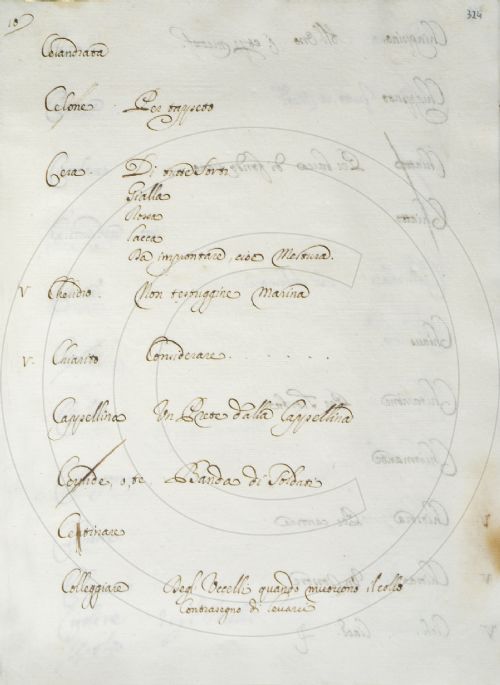 18
324
Celandrata
Celone Per tappeto
Cera. Di tutte sorti
Gialla
Rossa
lacca
Da improntare, cioè Mestura.
V Chelidio. Non testuggine Marina
V. Chiarito Considerare. . . . . .
Cappellina Un Prete dalla Cappellina
Cernide, o, te, Banda di Soldati
Centinare
Colleggiare Degl'Uccelli quando muovono il collo
Contrasegno di levarsi